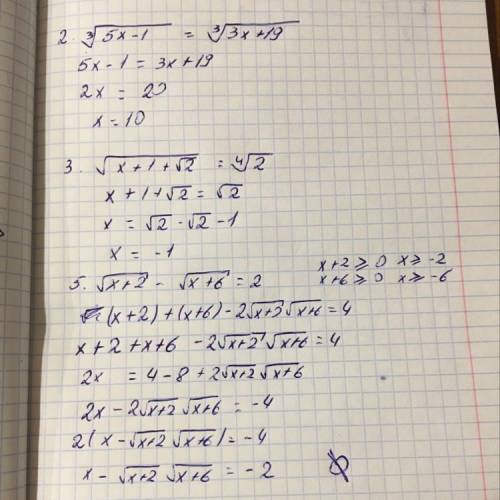 2. ∛(5x-1) = ∛(3x+19)
5x-1 = 3x+19
2x = 20
x = 10
3. √(x+1+√2) = ∜2
x+1+√2 = √2
x = √2 - √2 - 1
x = -1
5. √(x+2) - √(x+6) = 2
x+2 ⩾ 0 x ⩾ -2
x+6 ⩾ 0 x ⩾ -6
(x+2)+(x+6)-2√(x+2)√(x+6)=4
x+2+x+6 -2√(x+2)√(x+6)=4
2x = 4-8+2√(x+2)√(x+6)
2x-2√(x+2)√(x+6) = -4
2(x-√(x+2)√(x+6))=-4
x-√(x+2)√(x+6) = -2 ∅